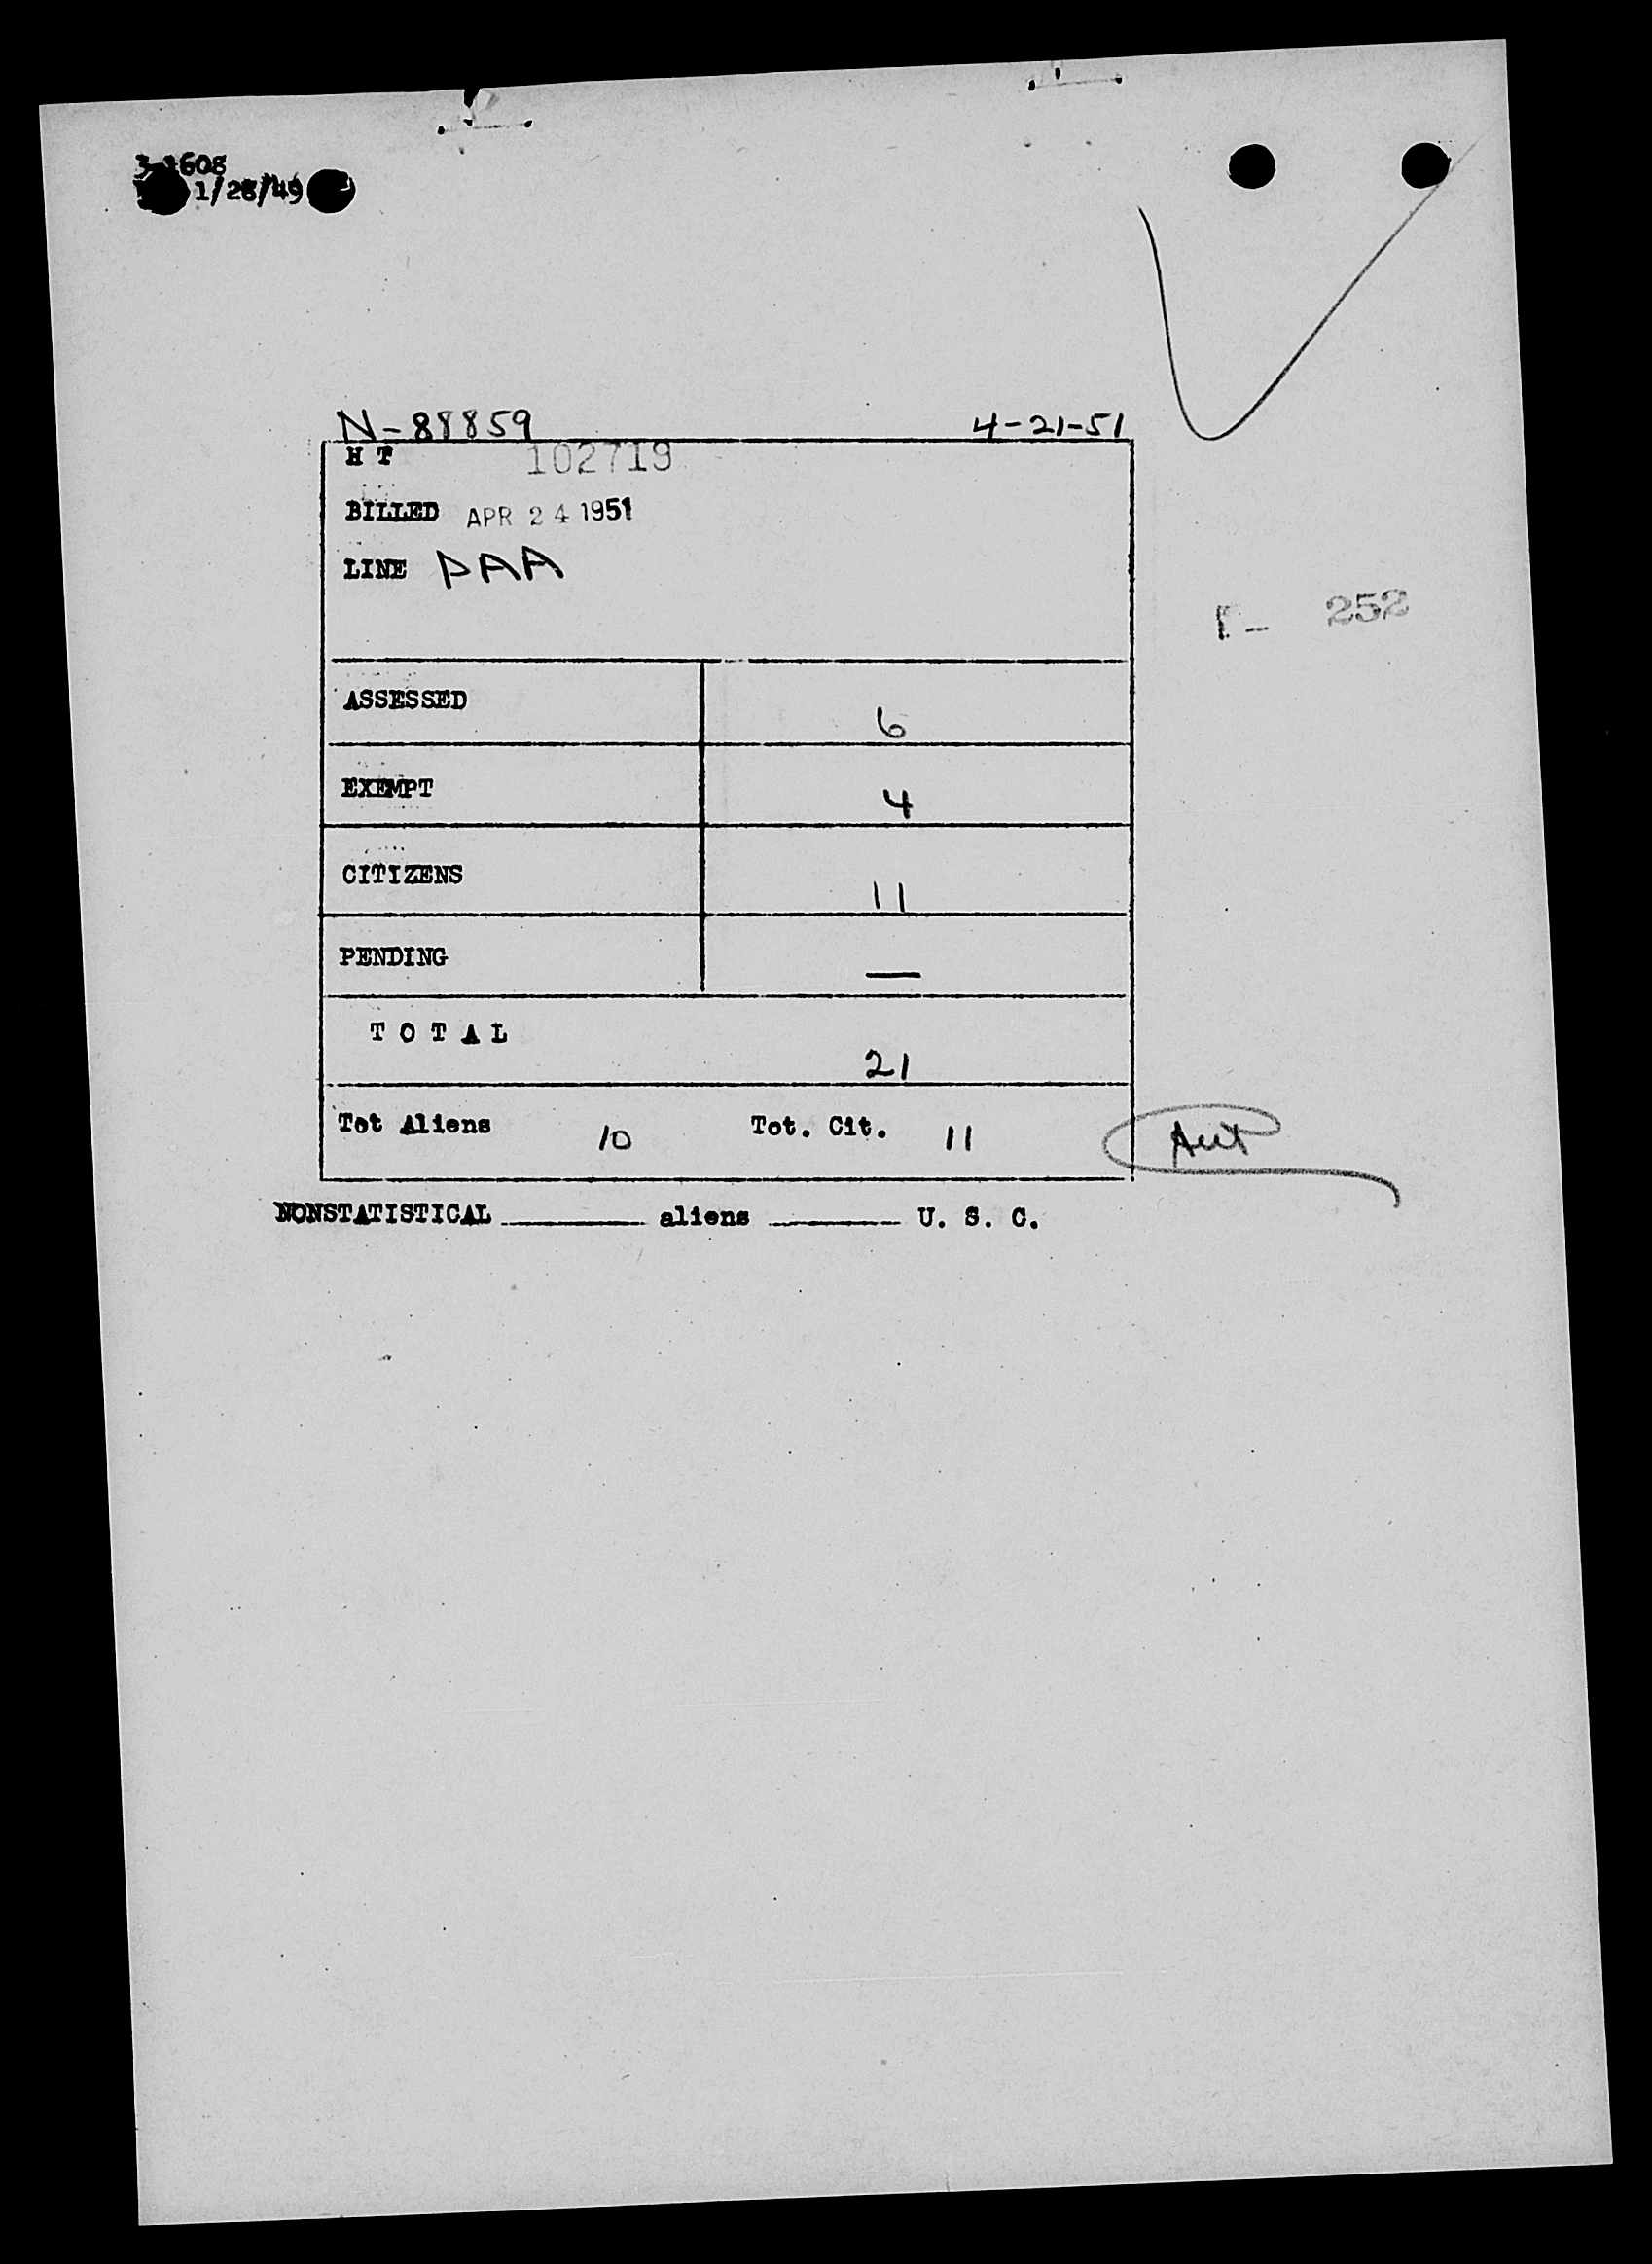 3-1608
1/28/49
N-88859 4-21-51
H T 102719
BILLED APR 24 1951
LINE PAA
252
ASSESSED 6
EXEMPT 4
CITIZENS 11
PENDING —
T O T A L 21
Tot Aliens 10 Tot. Cit. 11
NONSTATISTICAL ______ aliens ______ U. S. C.